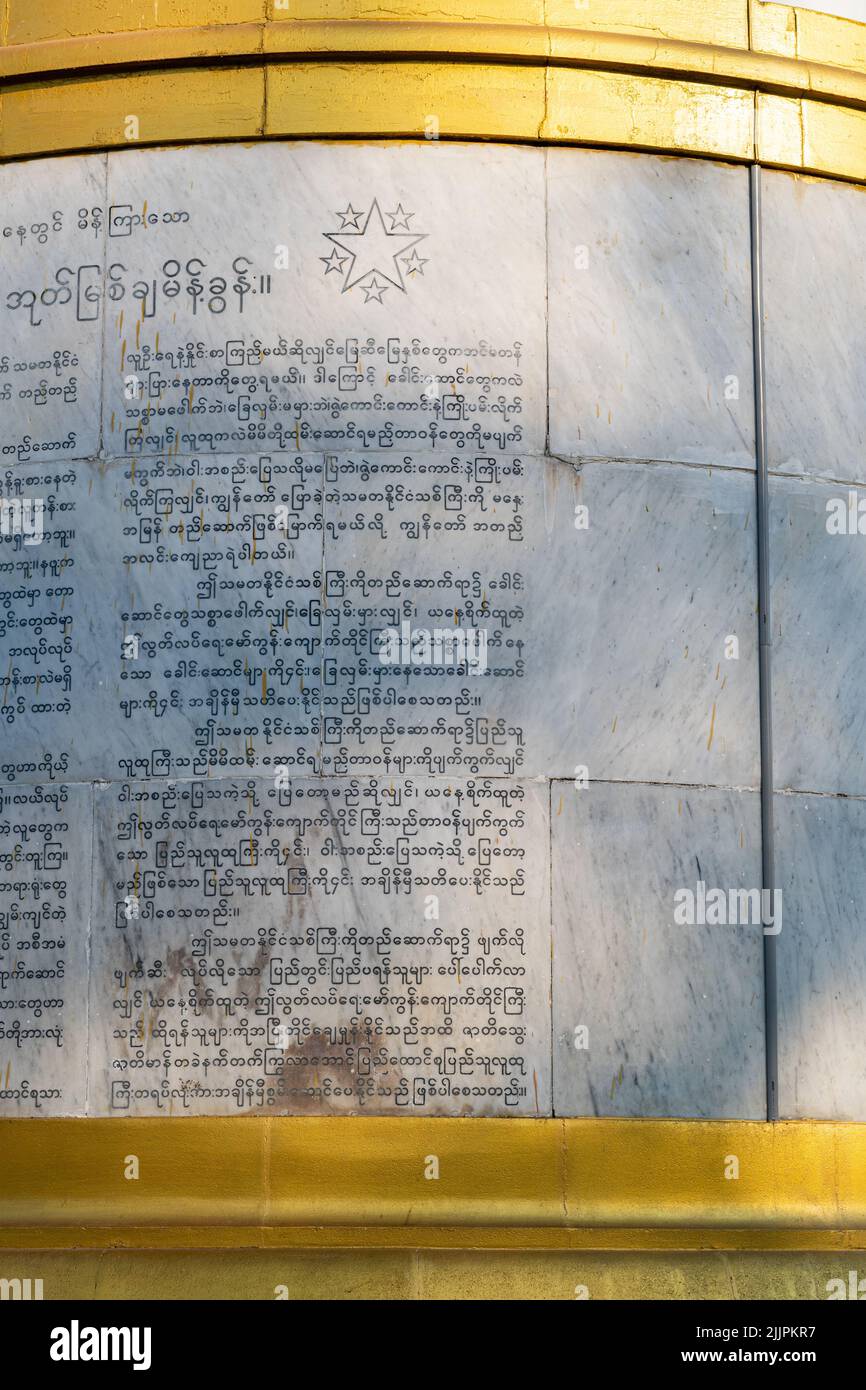 နေ့တွင် မိန့်ကြားသော
အုတ်မြစ်ချမိန့်ခွန်း။
က် သမတနိုင်ငံ
က် တည်တည်
တည်ဆောက်
လူဦးရေနဲ့နှိုင်းစာကြည့်မယ်ဆိုလျှင်မြေဆီမြေနှစ်တွေက
ပြားနေတာကိုတွေ့ရမယ်။ ဒါကြောင့် ခေါင်းဆောင်တွေကလဲ
သစ္စာမဖေါက်ဘဲ၊ခြေလှမ်းမမှားဘဲ၊ဇွဲကောင်းကောင်းနဲ့ကြိုးပမ်းလိုက်
ကြလျှင်၊ လူထုကလဲမိမိတို့ထမ်းဆောင်ရမည့်တာဝန်တွေကိုမပျက်
မကွက်ဘဲ၊ဝါးအစည်းပြေသလိုမပြေဘဲ၊ဇွဲကောင်းကောင်းနဲ့ကြိုးပမ်း
လိုက်ကြလျှင်၊ကျွန်တော် ပြောခဲ့တဲ့သမတနိုင်ငံသစ်ကြီးကို မနှေး
အမြန် တည်ဆောက်ဖြစ်မြောက်ရမယ်လို့ ကျွန်တော် အတည်
အလင်းကျေညာရဲပါတယ်။
ဤသမတနိုင်ငံသစ်ကြီးကိုတည်ဆောက်ရာ၌ ခေါင်း
ဆောင်တွေသစ္စာဖေါက်လျှင်၊ခြေလှမ်းမှားလျှင်၊ ယနေ့စိုက်ထူတဲ့
ဤလွတ်လပ်ရေးမော်ကွန်းကျောက်တိုင်ကြီးသည်သစ္စာဖေါက်နေ
သော ခေါင်းဆောင်များကို၄င်း၊ခြေလှမ်းမှားနေသောခေါင်းဆောင်
များကို၄င်း အချိန်မှီသတိပေးနိုင်သည်ဖြစ်ပါစေသတည်း။
ဤသမတနိုင်ငံသစ်ကြီးကိုတည်ဆောက်ရာ၌ပြည်သူ
လူထုကြီးသည်မိမိထမ်းဆောင်ရမည့်တာဝန်များကိုပျက်ကွက်လျှင်
ဝါးအစည်းပြေသကဲ့သို့ ပြေတော့မည်ဆိုလျှင်၊ ယနေ့စိုက်ထူတဲ့
ဤလွတ်လပ်ရေးမော်ကွန်းကျောက်တိုင်ကြီးသည်တာဝန်ပျက်ကွက်
သော ပြည်သူလူထုကြီးကို၄င်း၊ ဝါးအစည်းပြေသကဲ့သို့ပြေတော့
မည်ဖြစ်သောပြည်သူလူထုကြီးကို၄င်း အချိန်မှီသတိပေးနိုင်သည်
ဖြစ်ပါစေသတည်း။
ဤသမတနိုင်ငံသစ်ကြီးကိုတည်ဆောက်ရာ၌ ဖျက်လို
ဖျက်ဆီး လုပ်လိုသော ပြည်တွင်းပြည်ပရန်သူများ ပေါ်ပေါက်လာ
လျှင် ယနေ့စိုက်ထူတဲ့ဤလွတ်လပ်ရေးမော်ကွန်းကျောက်တိုင်ကြီး
သည် ထိုရန်သူများကိုအပြီးတိုင်ချေမှုန်းနိုင်သည်အထိ ဇာတိသွေး
ဇာတိမာန်တခဲနက်တက်ကြွလာအောင်ပြည်ထောင်စုပြည်သူလူထု
ကြီးတရပ်လုံးအားအချိန်မှီစွမ်းဆောင်ပေးနိုင်သည် ဖြစ်ပါစေသတည်း။
alamy
Image ID: 2JJPKR7
www.alamy.com